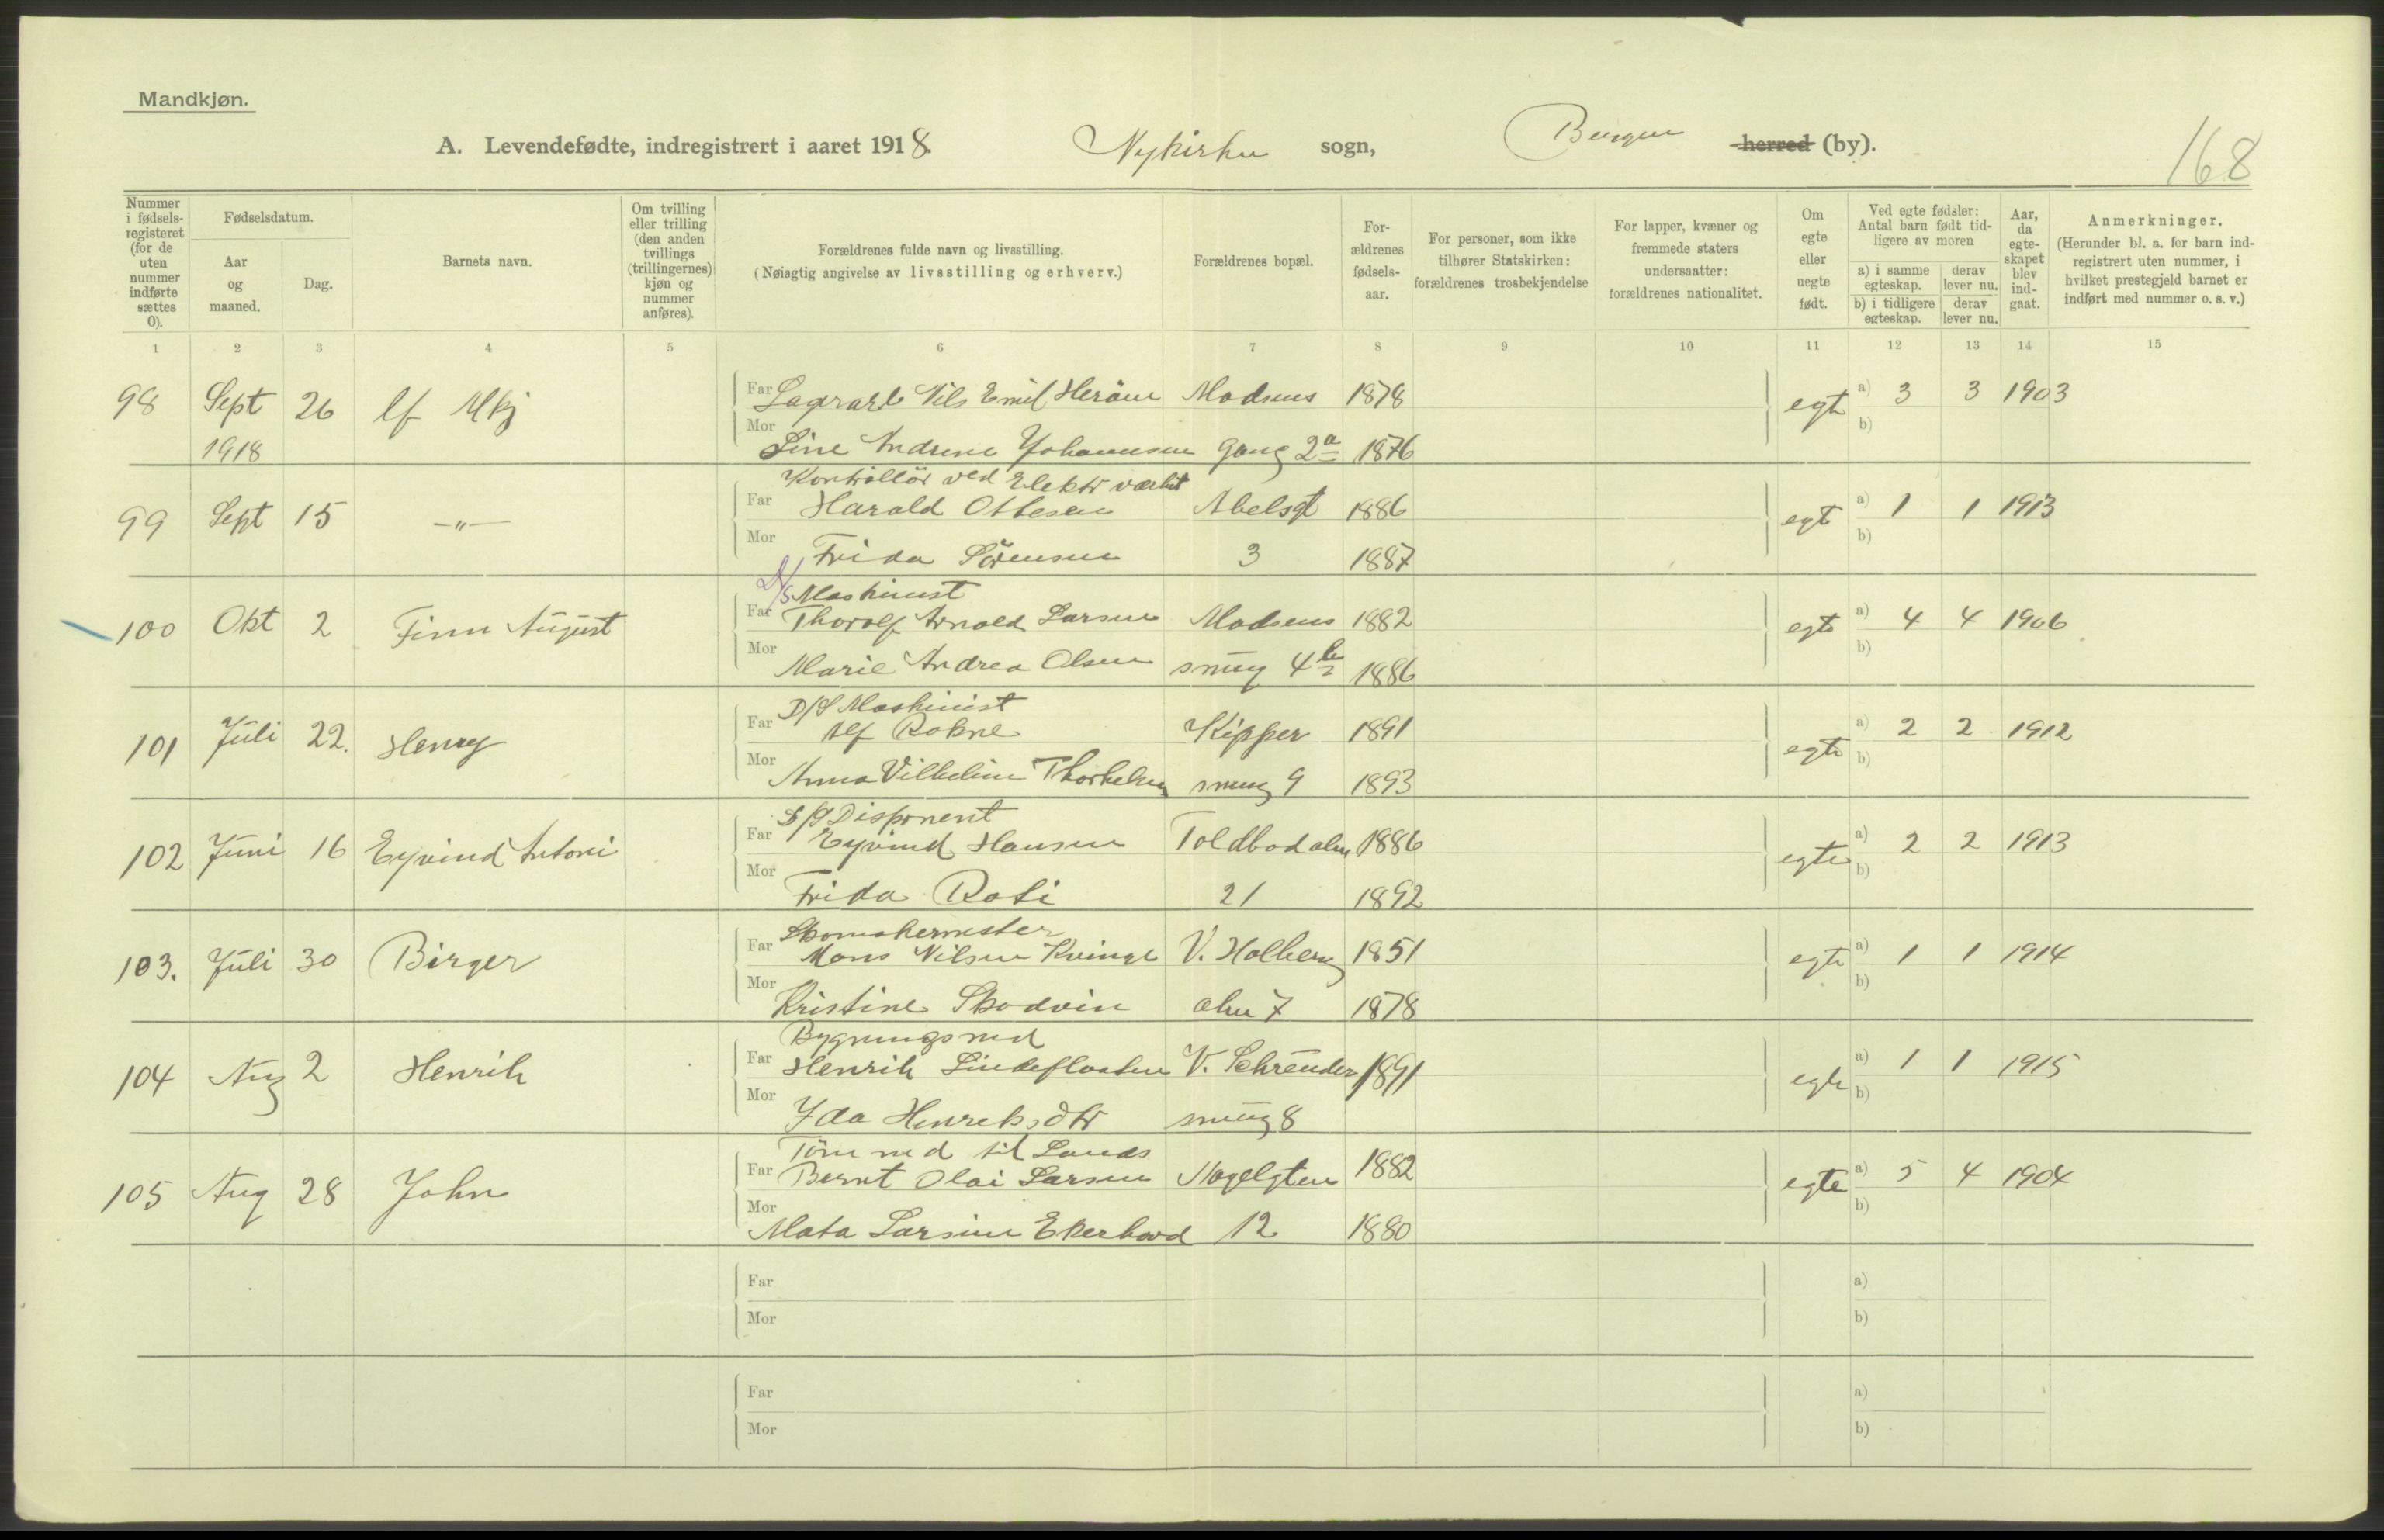 Mandkjøn.
A. Levendefødte, indregistrert i aaret 1918. Nykirken sogn, Bergen herred (by).
168
Nummer i fødsels-registeret (for de uten nummer indførte sættes 0).
Fødselsdatum.
Aar og maaned.
Dag.
Barnets navn.
Om tvilling eller trilling (den anden tvillings (trillingernes) kjøn og nummer anføres).
Forældrenes fulde navn og livsstilling.
(Nøiagtig angivelse av livsstilling og erhverv.)
Forældrenes bopæl.
For-ældrenes fødsels-aar.
For personer, som ikke tilhører Statskirken: forældrenes trosbekjendelse
For lapper, kvæner og fremmede staters undersaatter: forældrenes nationalitet.
Om egte eller uegte født.
Ved egte fødsler: Antal barn født tid-ligere av moren
a) i samme egteskap. derav lever nu.
b) i tidligere egteskap. derav lever nu.
Aar, da egte-skapet blev ind-gaat.
Anmerkninger.
(Herunder bl. a. for barn ind-registrert uten nummer, i hvilket prestegjeld barnet er indført med nummer o. s. v.)
1 2 3 4 5 6 7 8 9 10 11 12 13 14 15
98 Sept 26 lf Mkj Far Lagerarb Nils Emil Madsens 1878 egte a) 3 3 1903
1918 Mor Line Andrine Johannesen gang 2a 1876 b)
Kontrollør ved Elektr værket
99 Sept 15 —"— Far Harald Ottesen Abelsgt 1886 egte a) 1 1 1913
Mor Frida Sörensen 3 1887 b)
D/S Maskinist
100 Okt 2 Finn August Far Thorolf Arnold Larsen Madsens 1882 egte a) 4 4 1906
Mor Marie Andrea Olsen smug 4b 1886 b)
D/S Maskinist
101 Juli 22. Henry Far Alf Rokne Kipper 1891 egte a) 2 2 1912
Mor Anna Vilhelmine Thorkelsen smug 9 1893 b)
Disponent
102 Juni 16 Eyvind Antoni Far Eyvind Hansen Toldbodalm 1886 egte a) 2 2 1913
Mor Frida Roti 21 1892 b)
Skomakermester
103. Juli 30 Birger Far Mons Nilsen Kvinge V. Holberg 1851 egte a) 1 1 1914
Mor Kristine Skodvin alm 7 1878 b)
Bygningssned
104 Aug 2 Henrik Far Henrik Lindefloten V. Schreuder 1891 egte a) 1 1 1915
Mor Ida Henriksdtr smug 8 b)
Tömmned til Lands
105 Aug 28 John Far Bernt Olai Larsen Nagelgten 1882 egte a) 5 4 1904
Mor Mata Larsine Ekerhovd 12 1880 b)
Far a)
Mor b)
Far a)
Mor b)